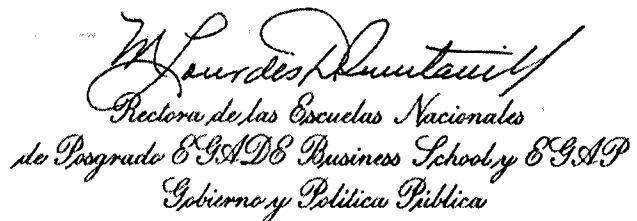 M Lourdes D Quintanill
Rectora de las Escuelas Nacionales
de Posgrado EGADE Business School y EGAP
Gobierno y Politica Pública